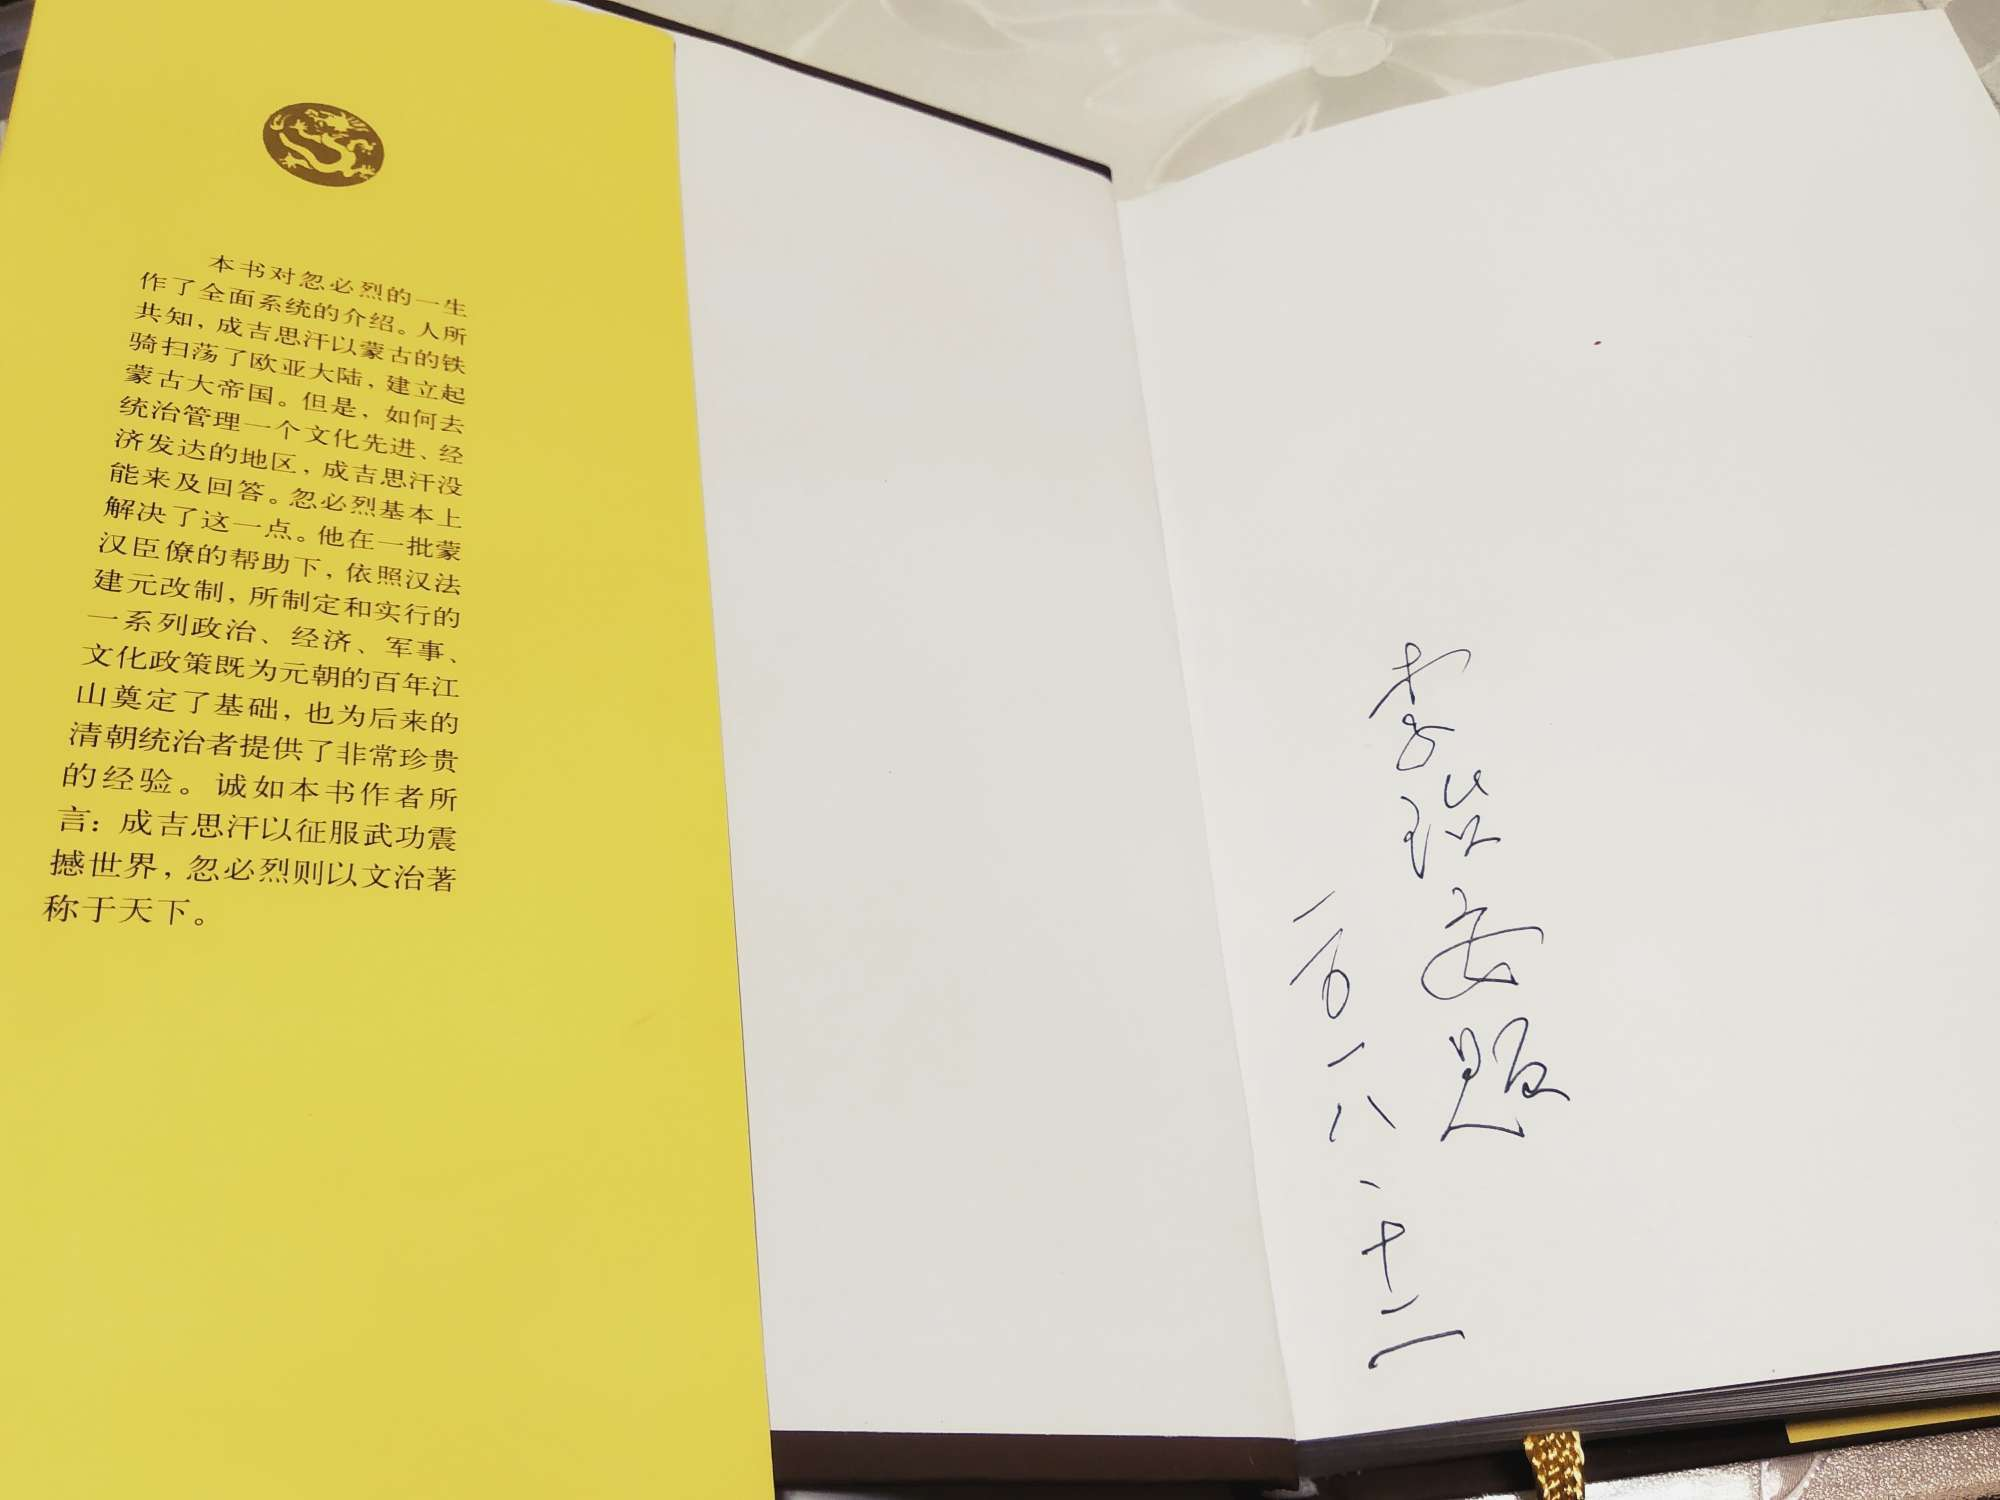 本书对忽必烈的一生
作了全面系统的介绍。人所
共知，成吉思汗以蒙古的铁
骑扫荡了欧亚大陆，建立起
蒙古大帝国。但是，如何去
统治管理一个文化先进、经
济发达的地区，成吉思汗没
能来及回答。忽必烈基本上
解决了这一点。他在一批蒙
汉臣僚的帮助下，依照汉法
建元改制，所制定和实行的
一系列政治、经济、军事、
文化政策既为元朝的百年江
山奠定了基础，也为后来的
清朝统治者提供了非常珍贵
的经验。诚如本书作者所
言：成吉思汗以征服武功震
撼世界，忽必烈则以文治著
称于天下。
李治安题
二〇一八、十二